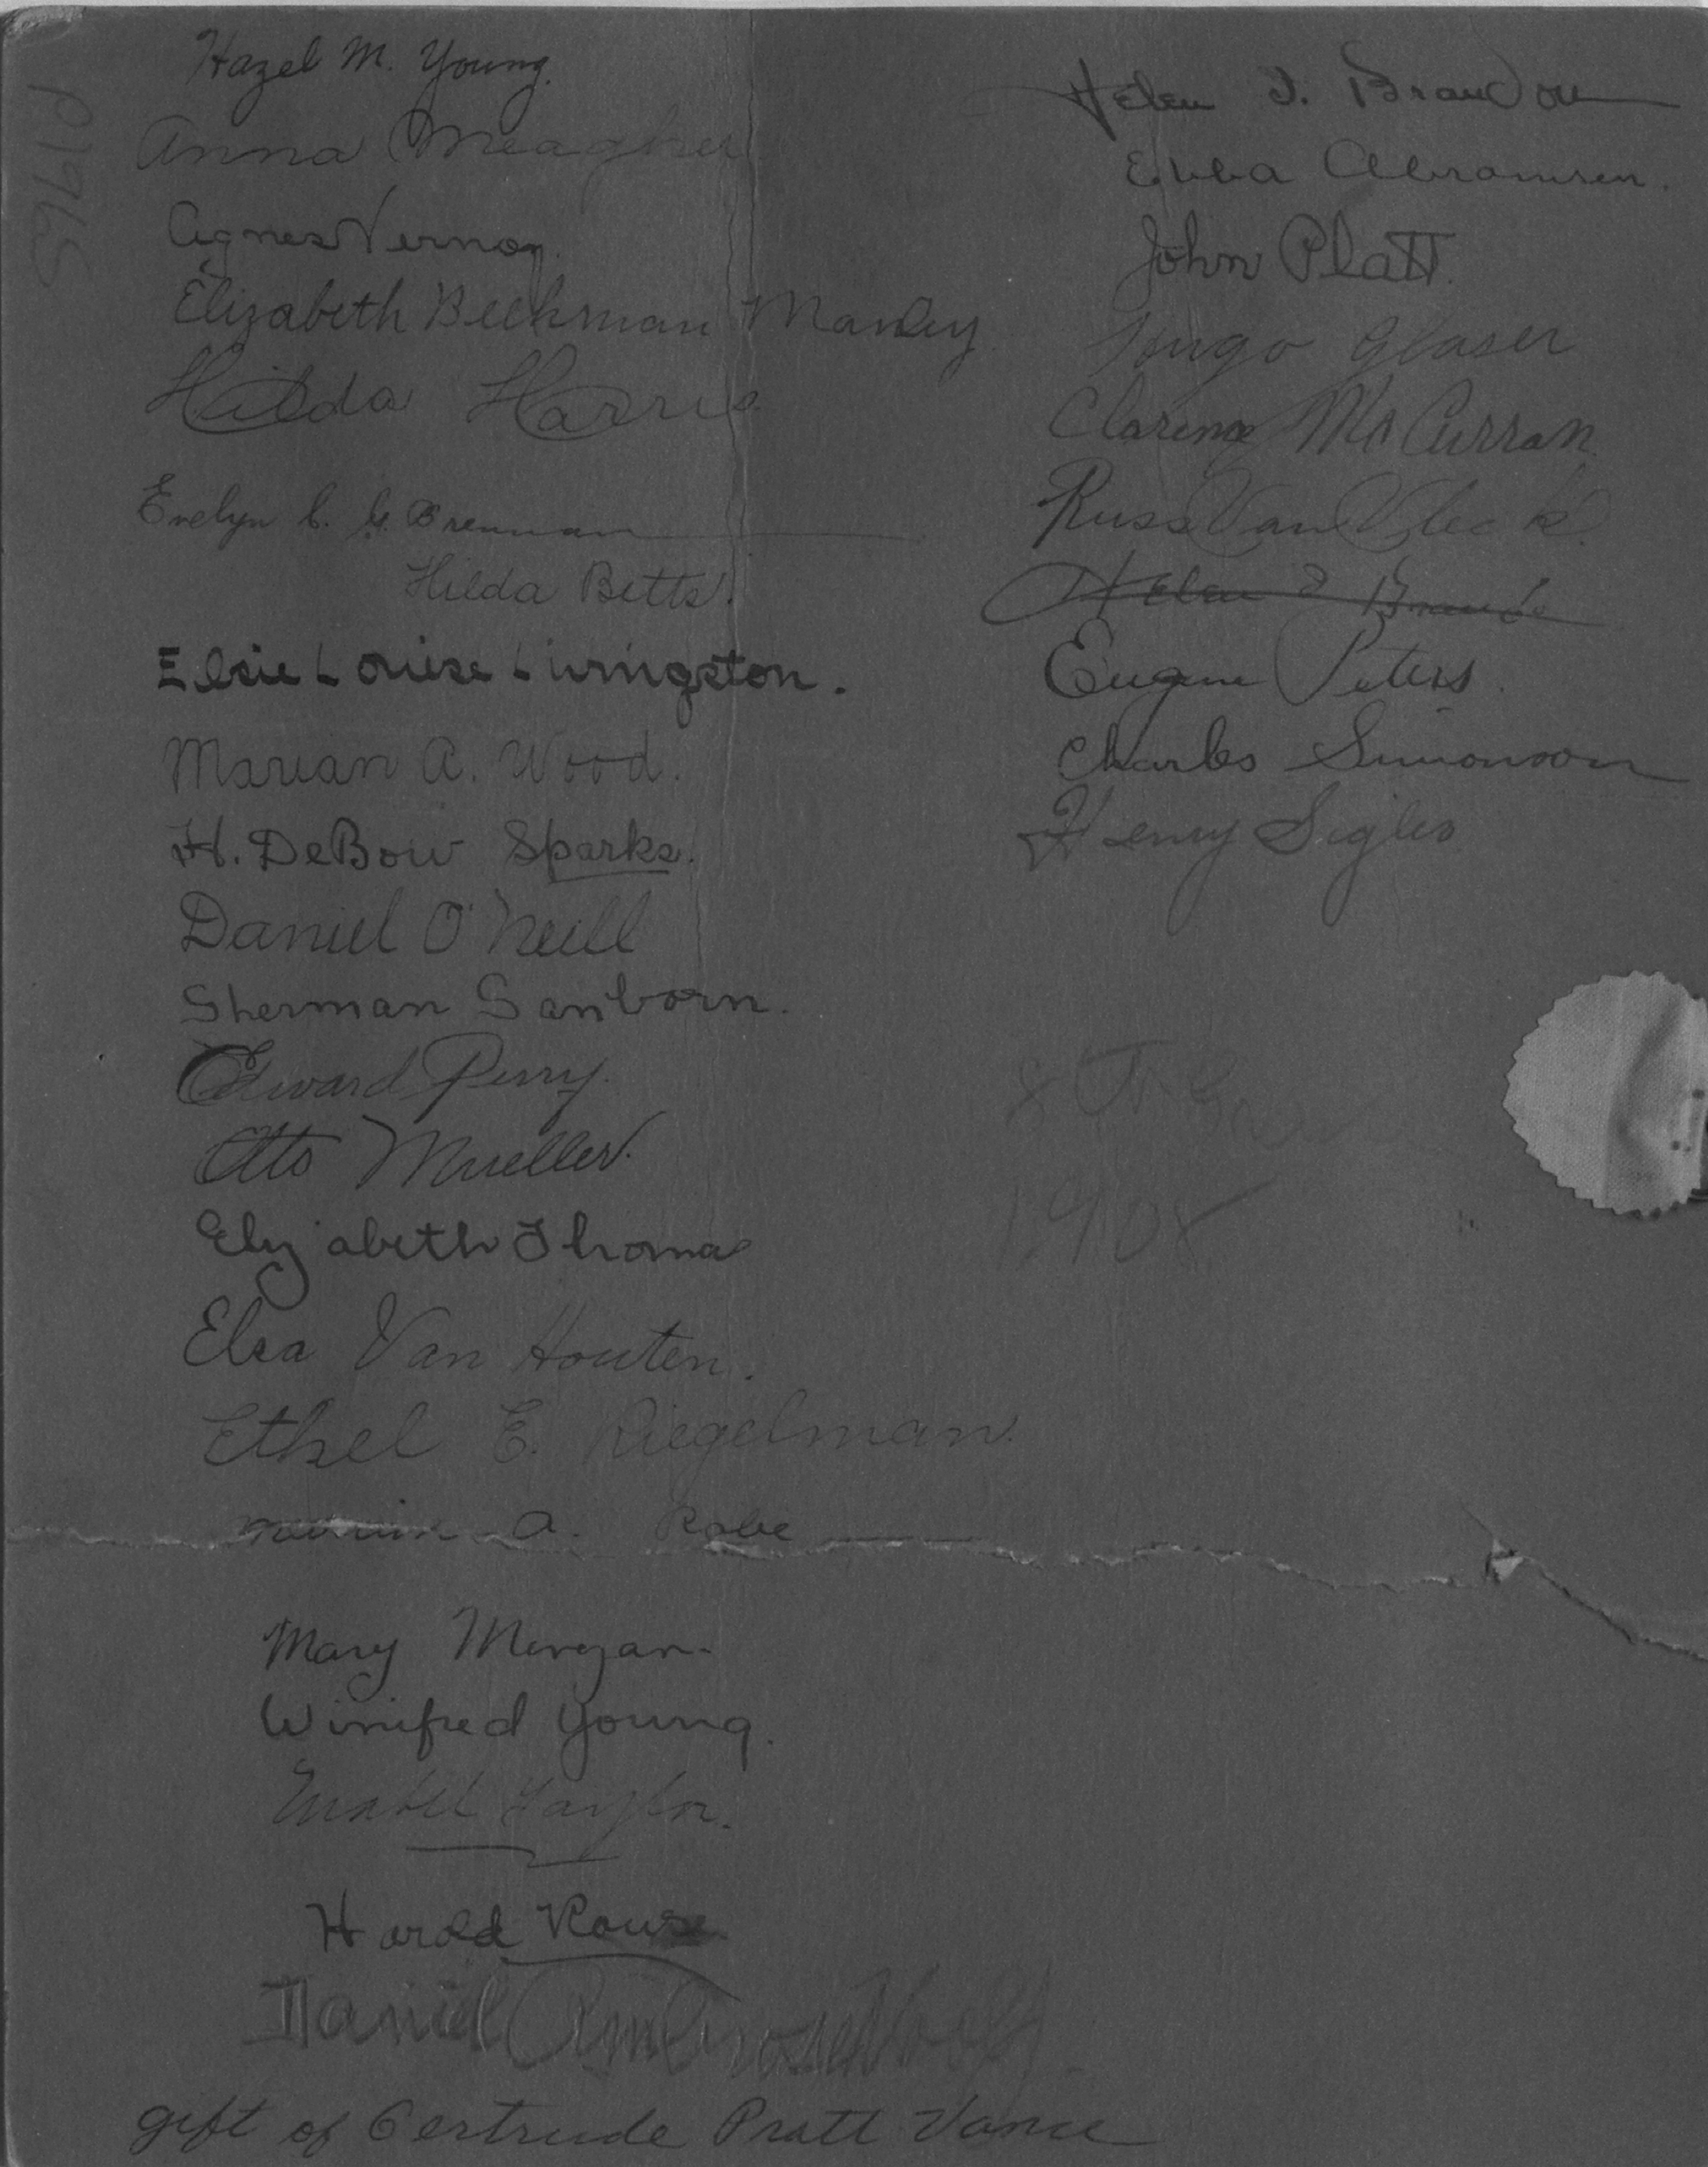 Hazel M. Young.
Anna Meagher
Agnes Vernoy.
Elizabeth Beekman Manley
Hilda Harris.
Evelyn C. G. Brennan
Hilda Betts.
Elsie Louise Livingston.
Marian A. Wood.
H. DeBow Sparks.
Daniel O'Neill
Sherman Sanborn.
Edward Perry.
Otto Mueller.
Elizabeth Thomas
Elsa Van Houten.
Ethel E. Riegelman.
A. Rabe
Mary Morgan.
Winifred Young.
Taylor.
Harold Rouse
Daniel
gift of Gertrude Pratt Vance
Helen I. Brandow
Ebba Abramsen.
John Platt.
Hugo Glaser
Clarence McCurran.
Russ Van Vleck.
Helen I
Eugene Peters.
Charles Simonson
Henry Sigler
8th Gr
1908
P1965